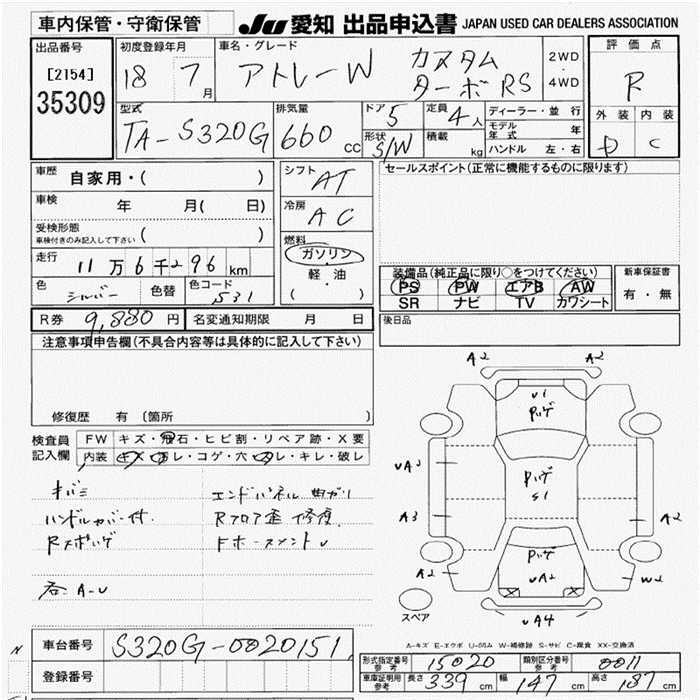 車内保管・守衛保管
JU 愛知 出品申込書 JAPAN USED CAR DEALERS ASSOCIATION
出品番号
[2154]
35309
初度登録年月
18 7月
車名・グレード
アトレーW カスタム ターボRS
2WD
4WD
評価点
R
外装 内装
D C
型式
TA-S320G
排気量
660 cc
ドア 5
定員 4人
形状 S/W
積載 kg
ディーラー・並行
モデル年式 年
ハンドル 左・右
車歴 自家用・( )
車検 年 月( 日)
受検形態
車検付きのみ記入して下さい ( )
走行 11万6千296km
色 シルバー 色替 色コード S31
シフト AT
冷房 AC
燃料
ガソリン
軽・油
( ・ )
セールスポイント(正常に機能するものに限ります)
装備品(純正品に限り○をつけてください)
PS PW エアB AW
SR ナビ TV カワシート
新車保証書
有・無
R券 9,880円 名変通知期限 月 日
後日品
注意事項申告欄(不具合内容等は具体的に記入して下さい)
修復歴 有 (箇所
検査員記入欄
FW キズ・飛石・ヒビ割・リペア跡・X要
内装 キズ・汚レ・コゲ・穴・スレ・キレ・破レ
ハンドルカバー付
エンドパネル曲ガリ
Rフロア歪 修復
A-U
A2 A2
U1
UA3
S1
A3 A2
A2 UA2 W2
UA4
スペア
A-キズ E-エクボ U-凹み W-補修跡 S-サビ C-腐食 XX-交換済
N
車台番号 S320G-0020151
登録番号
形式指定番号参考 15020 類別区分番号参考 0011
車庫証明用参考 長さ 339cm 幅 147cm 高さ 187cm